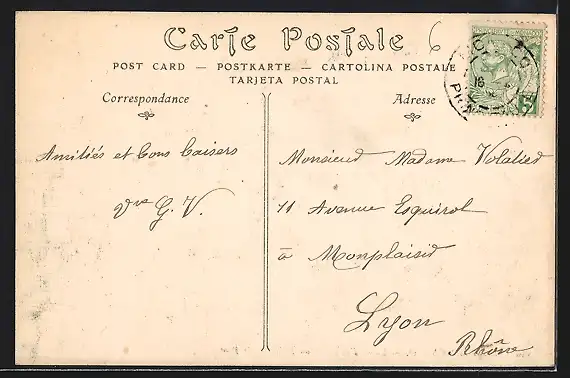 Carte Postale
6
POST CARD — POSTKARTE — CARTOLINA POSTALE
TARJETA POSTAL
Correspondance
Adresse
Amitiés et bons baisers
Vve G. V.
Monsieur Madame
11 Avenue Esquirol
à Monplaisir
Lyon
Rhône
16
5